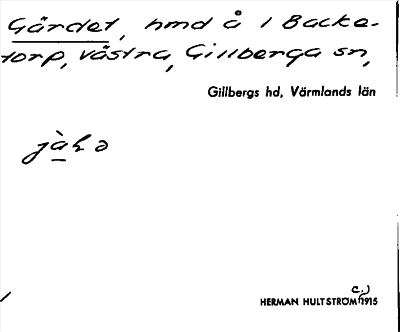 Gärdet, hmd å 1 Backe-
torp, Västra, Gillberga sn,
Gillbergs hd, Värmlands län
c.)
HERMAN HULTSTRÖM 1915